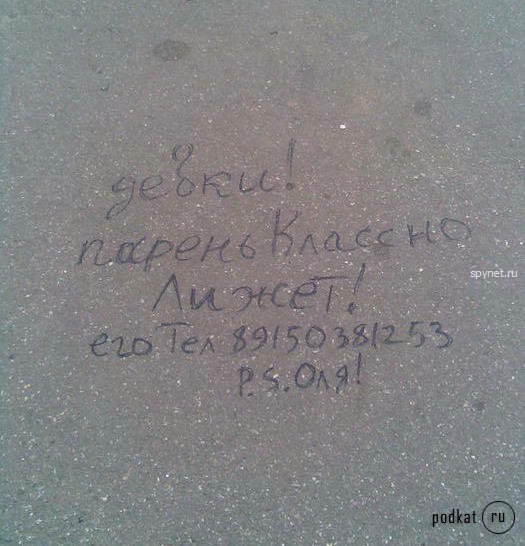 девки!
парень Классно
Лижет!
его Тел 89150381253
P.S. Оля!
spynet.ru
podkat ru